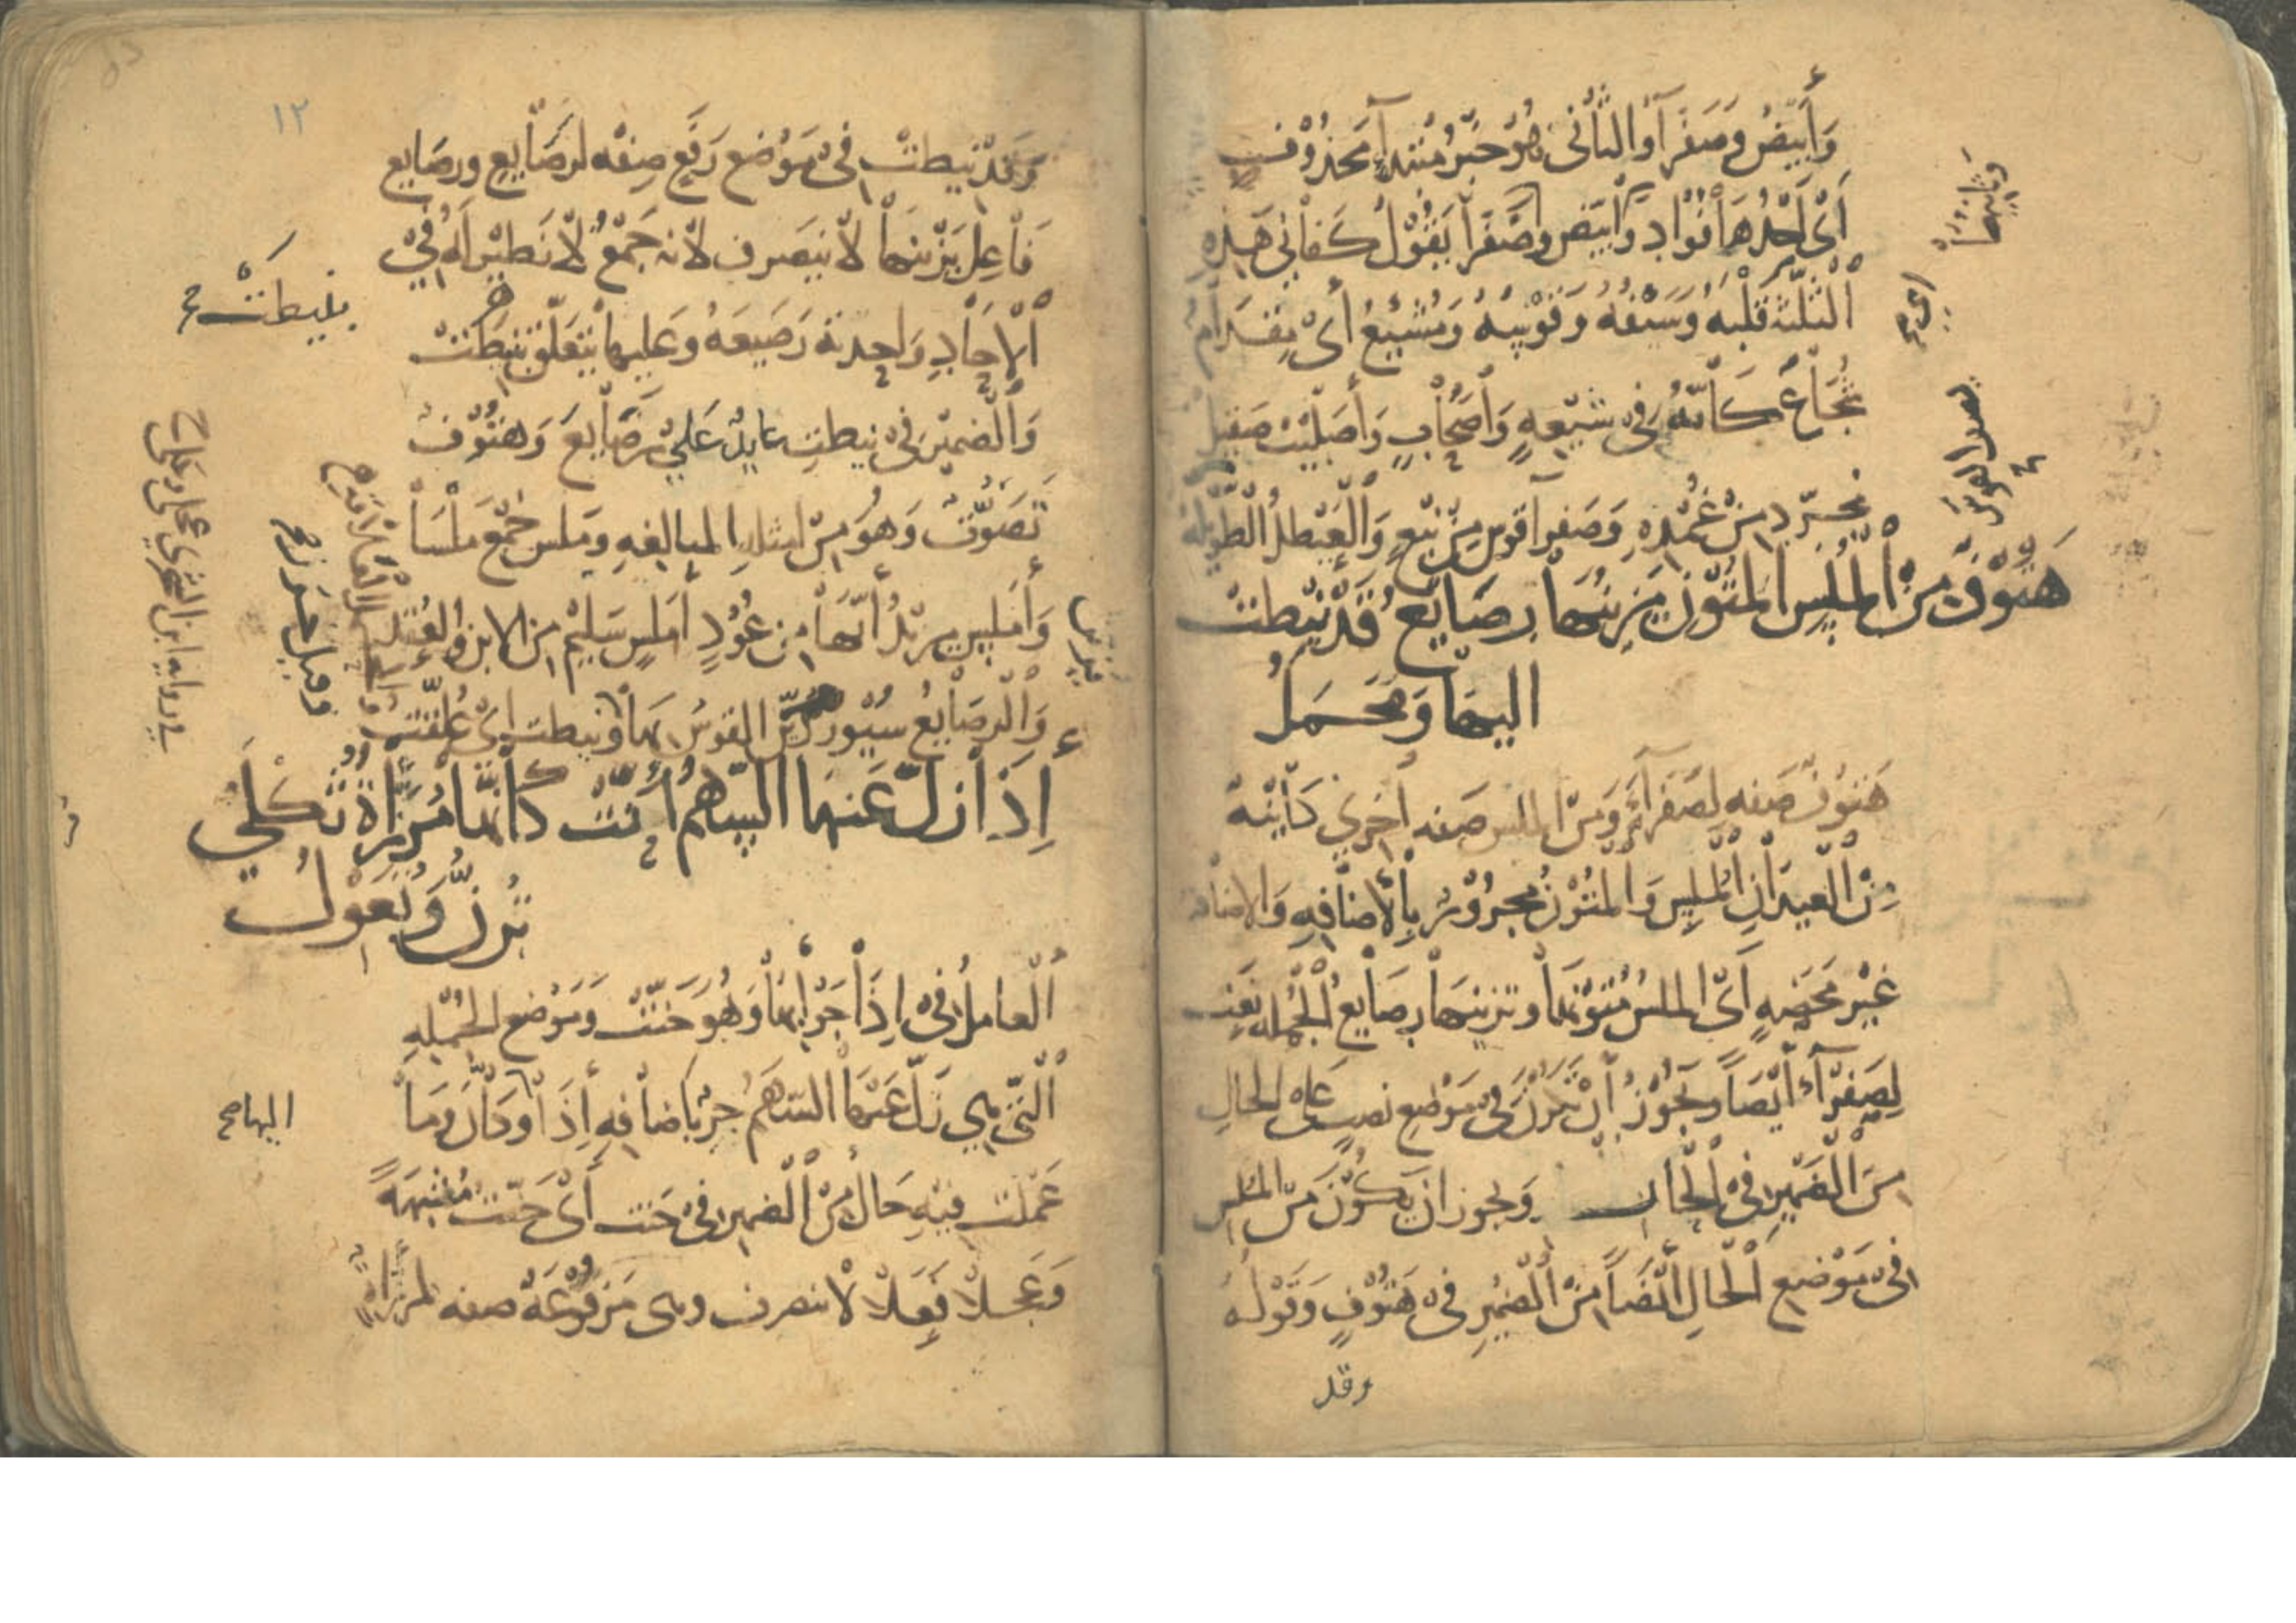 وَأَبْيَضُ وَصَفْرَآءُ وَالثَّانِى هُوَ خَبَرُ مُبْتَدَإٍ مَحْذُوْفٍ
أَىْ أَحَدُهَا فُؤَادٌ وَأَبْيَضُ وَصَفْرَآءُ يَقُوْلُ كَفَانِى هَذِهِ
الثَّلٰثَةُ قَلْبُهُ وَسَيْفُهُ وَقَوْسُهُ وَمُشَيَّعٌ أَىْ مِقْدَامٌ
شُجَاعٌ كَأَنَّهُ فِى شِيْعَةٍ وَأَصْحَابٍ وَأَصْلِيْتٌ صَقِيْل
مجرّد مِنْ غِمْدِهِ وَصَفْرَآءُ قَوْسٌ مِنْ نَبْعٍ وَالْعَيْطَلُ الطَّوِيْلَة
هَتُوْفٌ مِنَ الْمُلْسِ الْمُتُوْنِ يَزِيْنُهَا رَصَايِعُ قَدْ نِيْطَتْ
اليها وَمَحْمَلُ
هَتُوْفٌ صفه لِصَفْرَآءَ وَمِنَ الملس صفه أُخْرَى كَايْنَة
مِنَ الْعِيْدَانِ الْمُلْسِ وَالْمُتُوْنِ مَجْرُوْرٌ بِالْأِضَافَةِ وَالاضافة
غَيْر مَحْضَةٍ أَىِ الملس مُتُوْنُهَا وتزينها رصايع الْجُمْلَة نعت
لِصَفْرَآءَ أَيْضًا وَيَجُوْزُ أَنْ تَكُوْنَ فِى مَوْضِعِ نصبٍ عَلَى الحال
مِنَ الضَّمِيْرِ فِى الْجَارِ وَيجوز ان يَكُوْنَ مِنَ الملس
فِى مَوْضِعِ الْحَالِ أَيْضًا مِنَ الضَّمِيْرِ فِى هَتُوْفٍ وَقَوْلُهُ
وقد
وثانيها
اى
١٢
وَقَدْ نِيْطَتْ فِى مَوْضع رَفْعٍ صِفَه لرَصَايِع ورصايع
فَاعِل يَزِيْنُهَا لَا يَنْصَرِف لأنه جَمْعٌ لَا نَظِيْرَ لَهُ فِى
الْآحَادِ وَاحِدته رَصِيْعَهُ وَعَليها يتعَلَّق بِنِيْطَتْ
وَالضَّمِيْرُ فِى نيطت عايدٌ عَلَى رَصَايِعَ وَهتُوْف
تَصَوّتُ وَهُوَ مِنْ امثله المبالغهِ وملس جَمْعُ مَلْسَا
وَأَمْلس يريْدُ أَنَّهَا مِن عُوْدٍ أَمْلس سَلِيْمٍ مِن الابن وَالعُقَد
وَالرَّصَايعُ سُيُوْر يزين القوس بِهَا ونيطت اىْ عُلِّقَتْ
إِذَا زَلَّ عَنهَا السَّهْمُ حَنَّتْ كَأَنَّهَا مُرَزَّأَةٌ ثَكْلَى
تُرِنُّ وَتُعْوِلُ
الْعَامِلُ فِى إِذَا جَوَابُهَا وَهُوَ حَنَّتْ وَمَوْضع الجمْلهِ
الَّتِى هى زَلَّ عَنهَا السَّهْمُ جرٌّ بِاضَافهِ إِذَا وكَأَنَّ وَمَا
عَمِلَتْ فِيْهِ حَالٌ مِنَ الضّمِيْر فِى حَنت أَىْ حَنَّت مُشبهةً
وَعَجلَا فَعلا لَا ينصرف وهى مَرْفُوْعَةٌ صفه لمرزأةٌ
بنيطَتْ
اليها